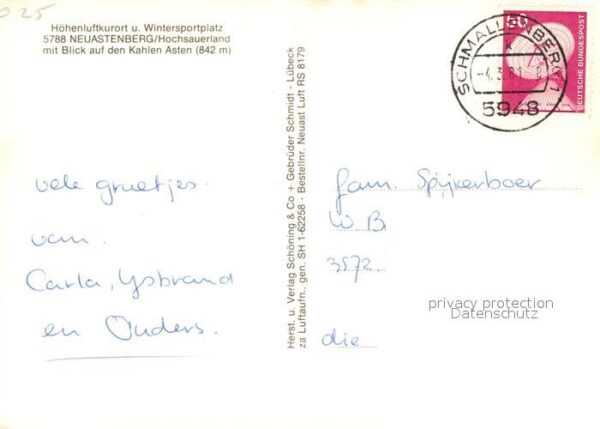 025
Höhenluftkurort u. Wintersportplatz
5788 NEUASTENBERG/Hochsauerland
mit Blick auf den Kahlen Asten (842 m)
vele groetjes.
van.
Carla, Ysbrand
en Ouders.
Herst. u. Verlag Schöning & Co + Gebrüder Schmidt - Lübeck
za Luftaufn., gen. SH 1-62258 - Bestellnr. Neuast Luft RS 8179
60
DEUTSCHE BUNDESPOST
SCHMALLENBERG 1
5948
fam. Spijkerboer
W B.
3572
die
privacy protection
Datenschutz